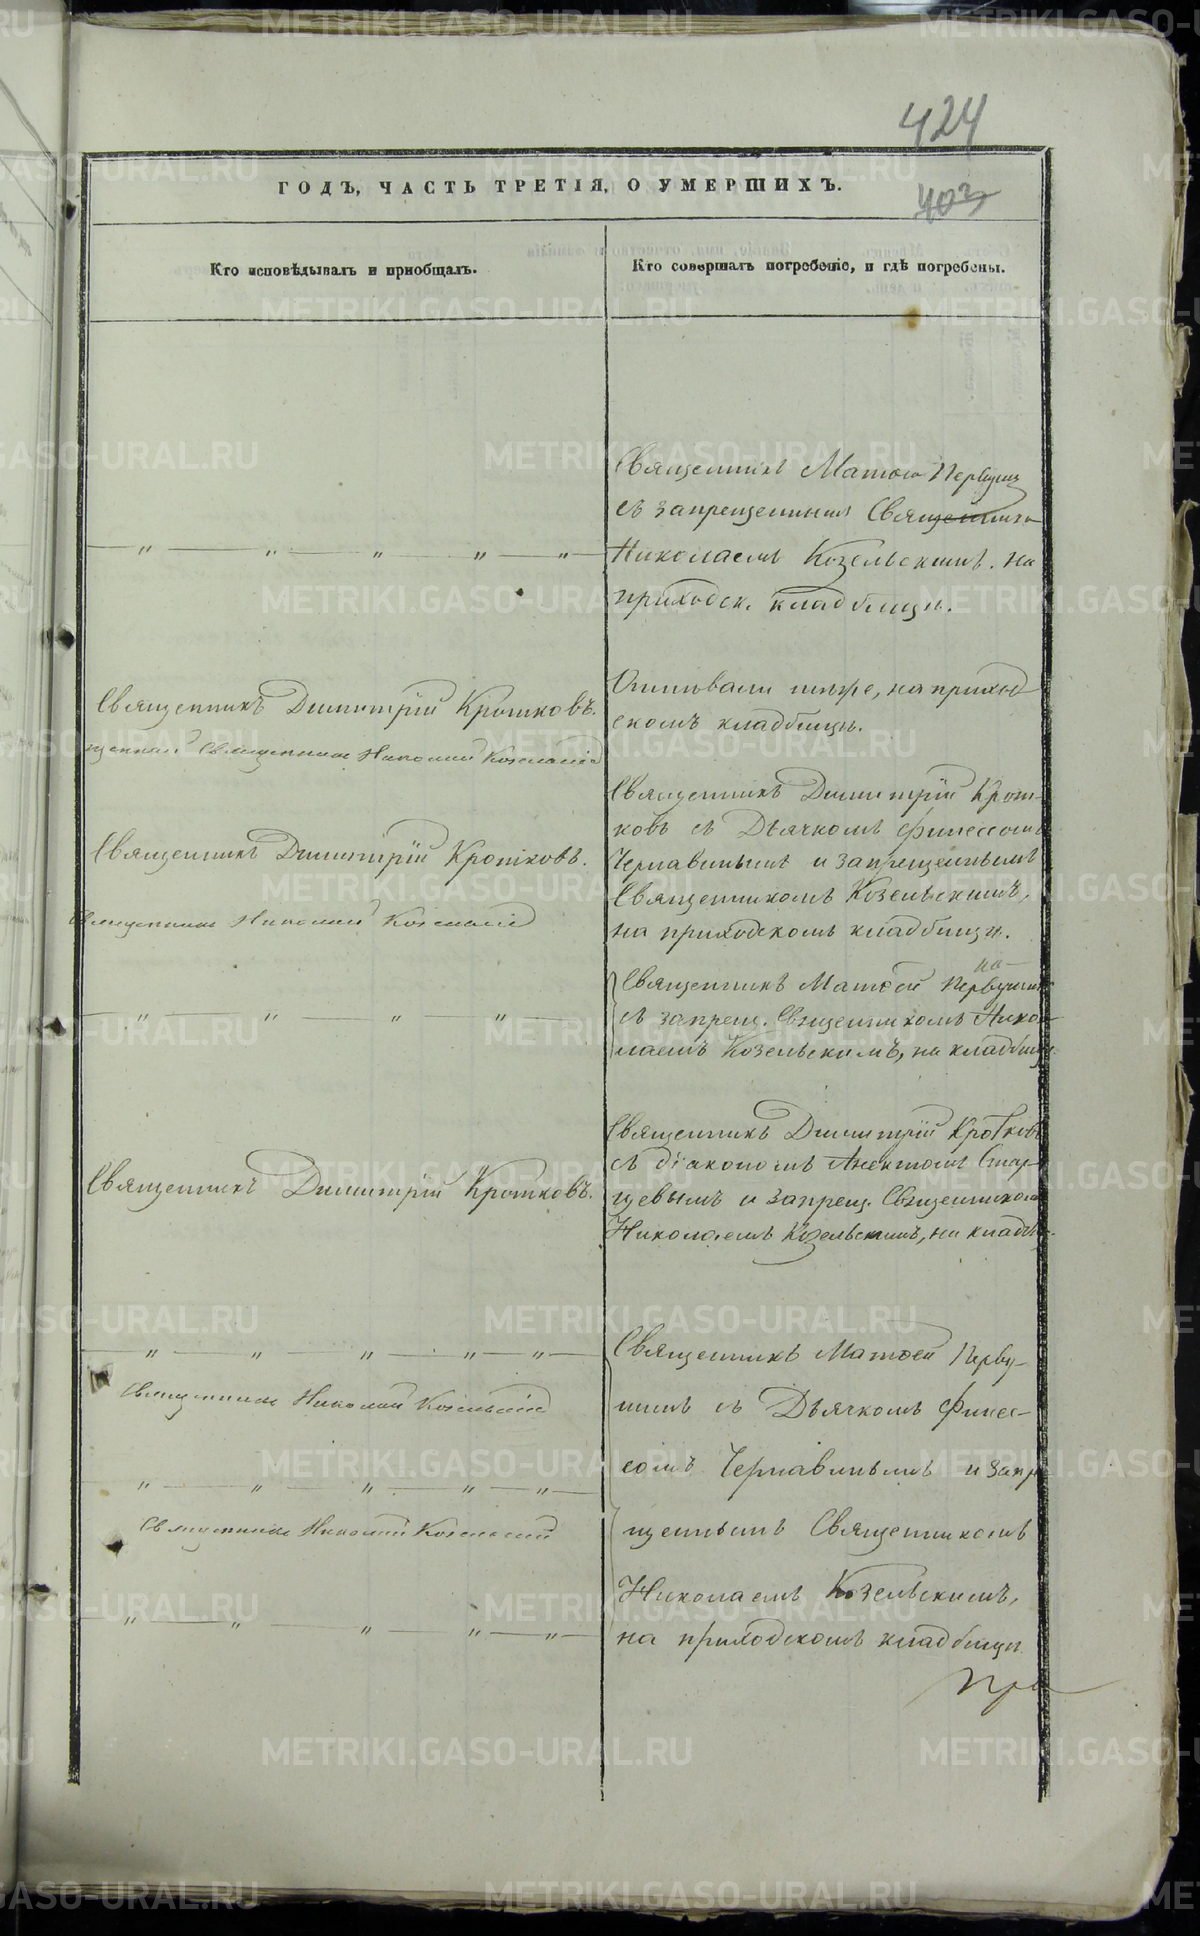 424
ГОДЪ, ЧАСТЬ ТРЕТІЯ, О УМЕРШИХЪ.
403
Кто исповѣдывалъ и пріобщалъ.
Кто совершалъ погребеніе, и гдѣ погребены.
Священникъ Матѳей Первушин
съ запрещенным Священником
— „ — „ — „ — „ — „ —
Николаемъ Козельскимъ. на
приходск. кладбищѣ.
Священникъ Димитрій Кротковъ.
щенный Священникъ Николай Козельскій
Отпѣвали тѣже, на приход
скомъ кладбищѣ.
Священникъ Димитрій Кротковъ.
Священникъ Николай Козельскій
Священникъ Димитрій Крот-
ковъ съ Дьячкомъ Финеесомъ
Чернавинымъ и запрещеннымъ
Священникомъ Козельскимъ,
на приходскомъ кладбищѣ.
— „ — „ — „ — „ —
Священникъ Матѳей Первушинъ
съ запрещ. Священникомъ Нико-
лаемъ Козельскимъ, на кладбищѣ
Священникъ Димитрій Кротковъ.
Священникъ Димитрій Кротковъ
съ діакономъ Стар-
цевымъ и запрещ. Священникомъ
Николаемъ Козельскимъ, на кладб.
— „ — „ — „ — „ — „ —
Священникъ Николай Козельскій
— „ — „ — „ — „ — „ —
Священникъ Николай Козельскій
— „ — „ — „ — „ — „ —
Священникъ Матѳей Перву-
шинъ съ Дьячкомъ Финее-
сомъ Чернавинымъ и запре
щеннымъ Священникомъ
Николаемъ Козельскимъ,
на приходскомъ кладбищѣ
METRIKI.GASO-URAL.RU